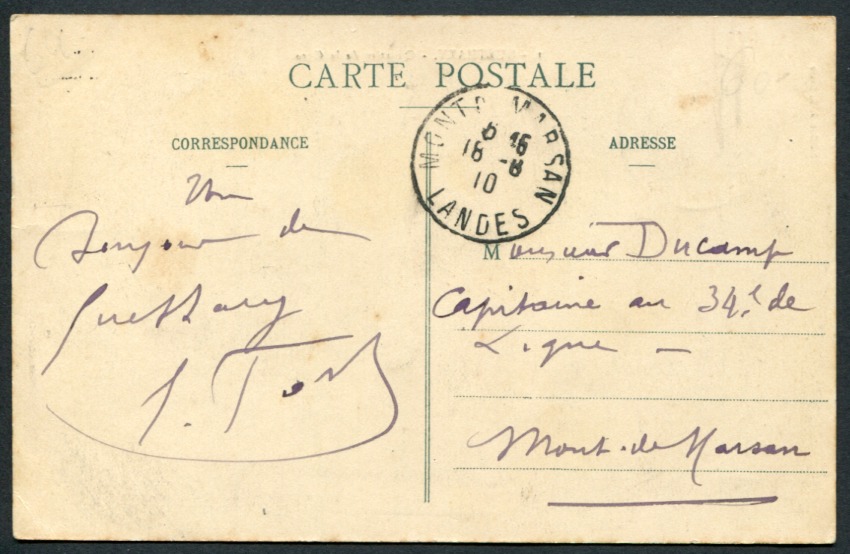 CARTE POSTALE
CORRESPONDANCE
ADRESSE
MONT-DE-MARSAN
18 -8
10
LANDES
Un
bonjour de
Guéthary
Monsieur Ducamp
Capitaine au 34e de
Ligne —
Mont-de-Marsan